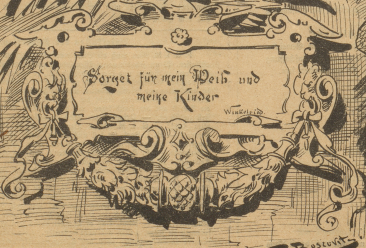 Sorget für mein Weib und
meine Kinder
Winkelried
Boscovits